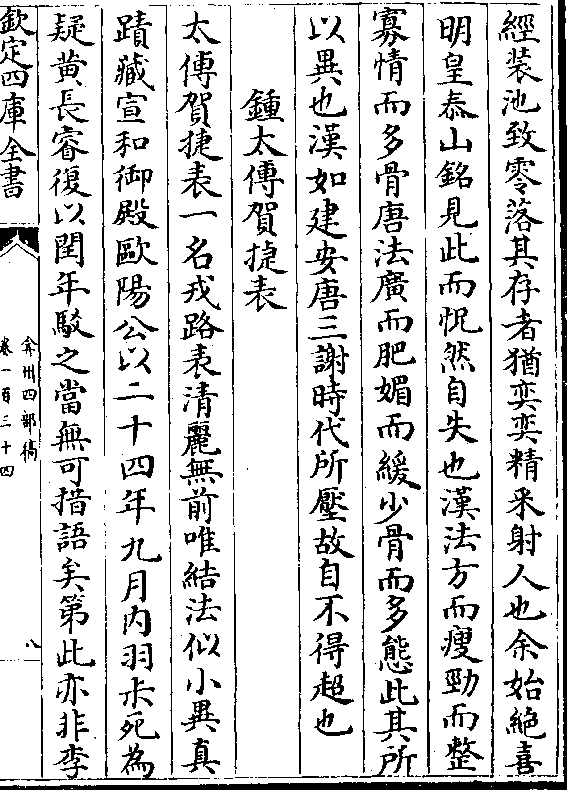 經裝池致零落其存者猶奕奕精采射人也余始絶喜
明皇泰山銘見此而怳然自失也漢法方而瘦勁而整
寡情而多骨唐法廣而肥媚而緩少骨而多態此其所
以異也漢如建安唐三謝時代所壓故自不得超也
鍾太傅賀捷表
太傅賀捷表一名戎路表清麗無前唯結法似小異真
蹟藏宣和御殿歐陽公以二十四年九月内羽未死為
疑黄長睿復以閏年駁之當無可措語矣第此亦非李
欽定四庫全書
弇州四部稿
卷一百三十四
八